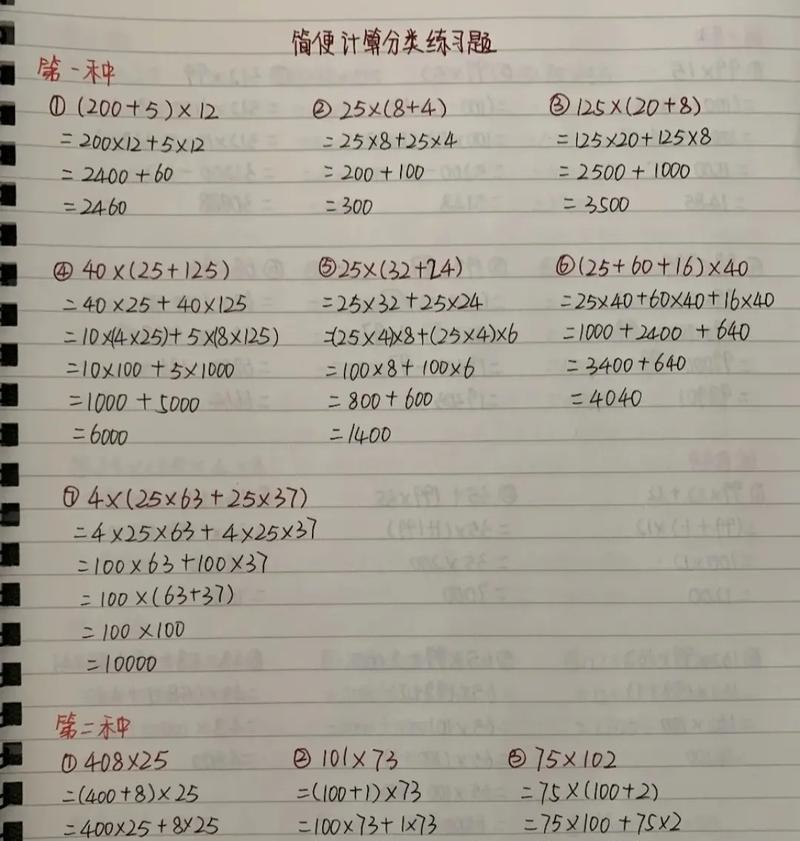 简便计算分类练习题
第一种
① (200+5)×12
=200×12+5×12
=2400+60
=2460
② 25×(8+4)
=25×8+25×4
=200+100
=300
③ 125×(20+8)
=125×20+125×8
=2500+1000
=3500
④ 40×(25+125)
=40×25+40×125
=10×(4×25)+5×(8×125)
=10×100+5×1000
=1000+5000
=6000
⑤ 25×(32+24)
=25×32+25×24
=(25×4)×8+(25×4)×6
=100×8+100×6
=800+600
=1400
⑥ (25+60+16)×40
=25×40+60×40+16×40
=1000+2400+640
=3400+640
=4040
⑦ 4×(25×63+25×37)
=4×25×63+4×25×37
=100×63+100×37
=100×(63+37)
=100×100
=10000
第二种
① 408×25
=(400+8)×25
=400×25+8×25
② 101×73
=(100+1)×73
=100×73+1×73
③ 75×102
=75×(100+2)
=75×100+75×2